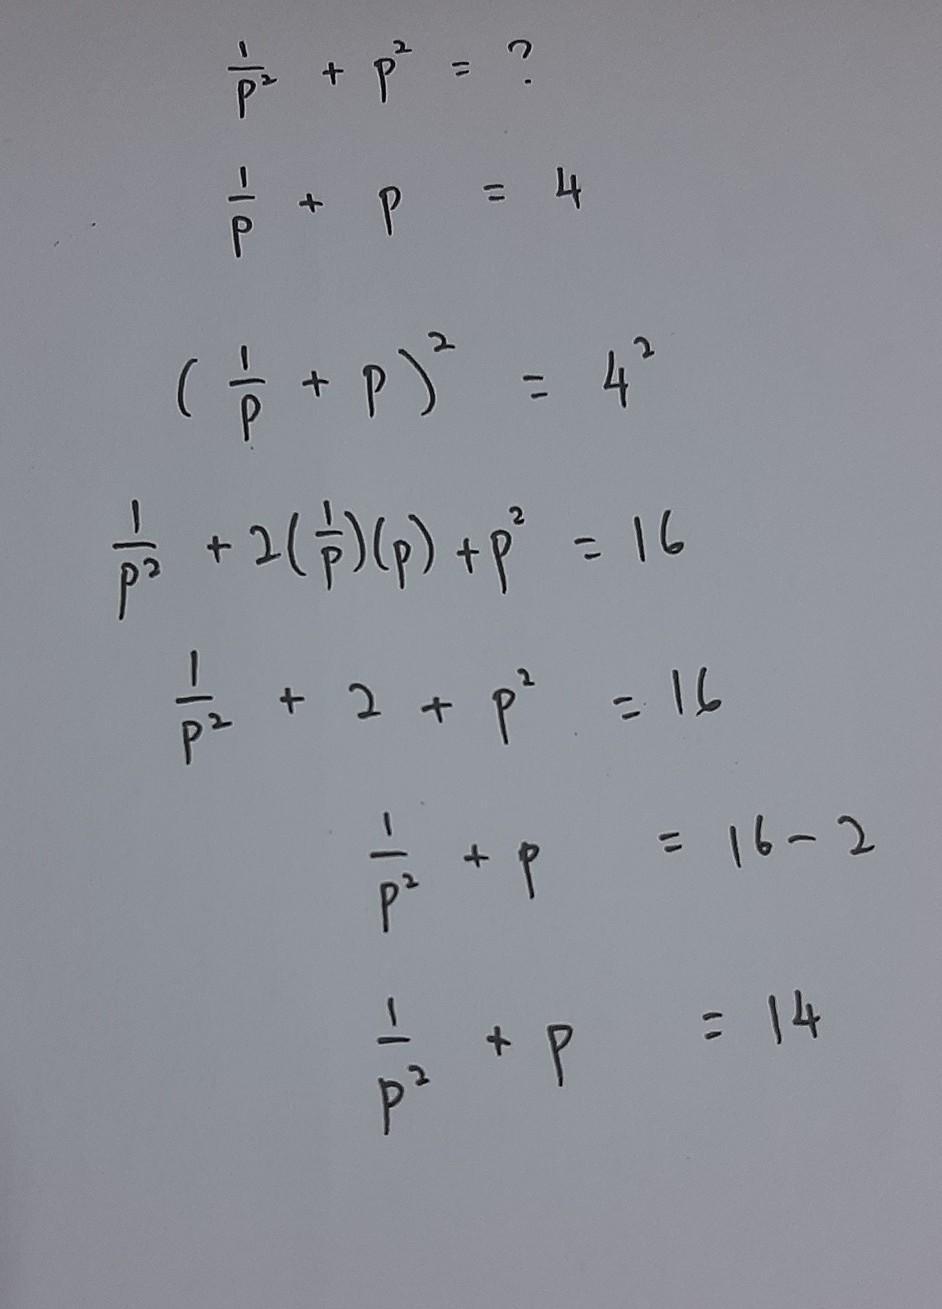 1/p² + p² = ?
1/p + p = 4
(1/p + p)² = 4²
1/p² + 2(1/p)(p) + p² = 16
1/p² + 2 + p² = 16
1/p² + p = 16 - 2
1/p² + p = 14